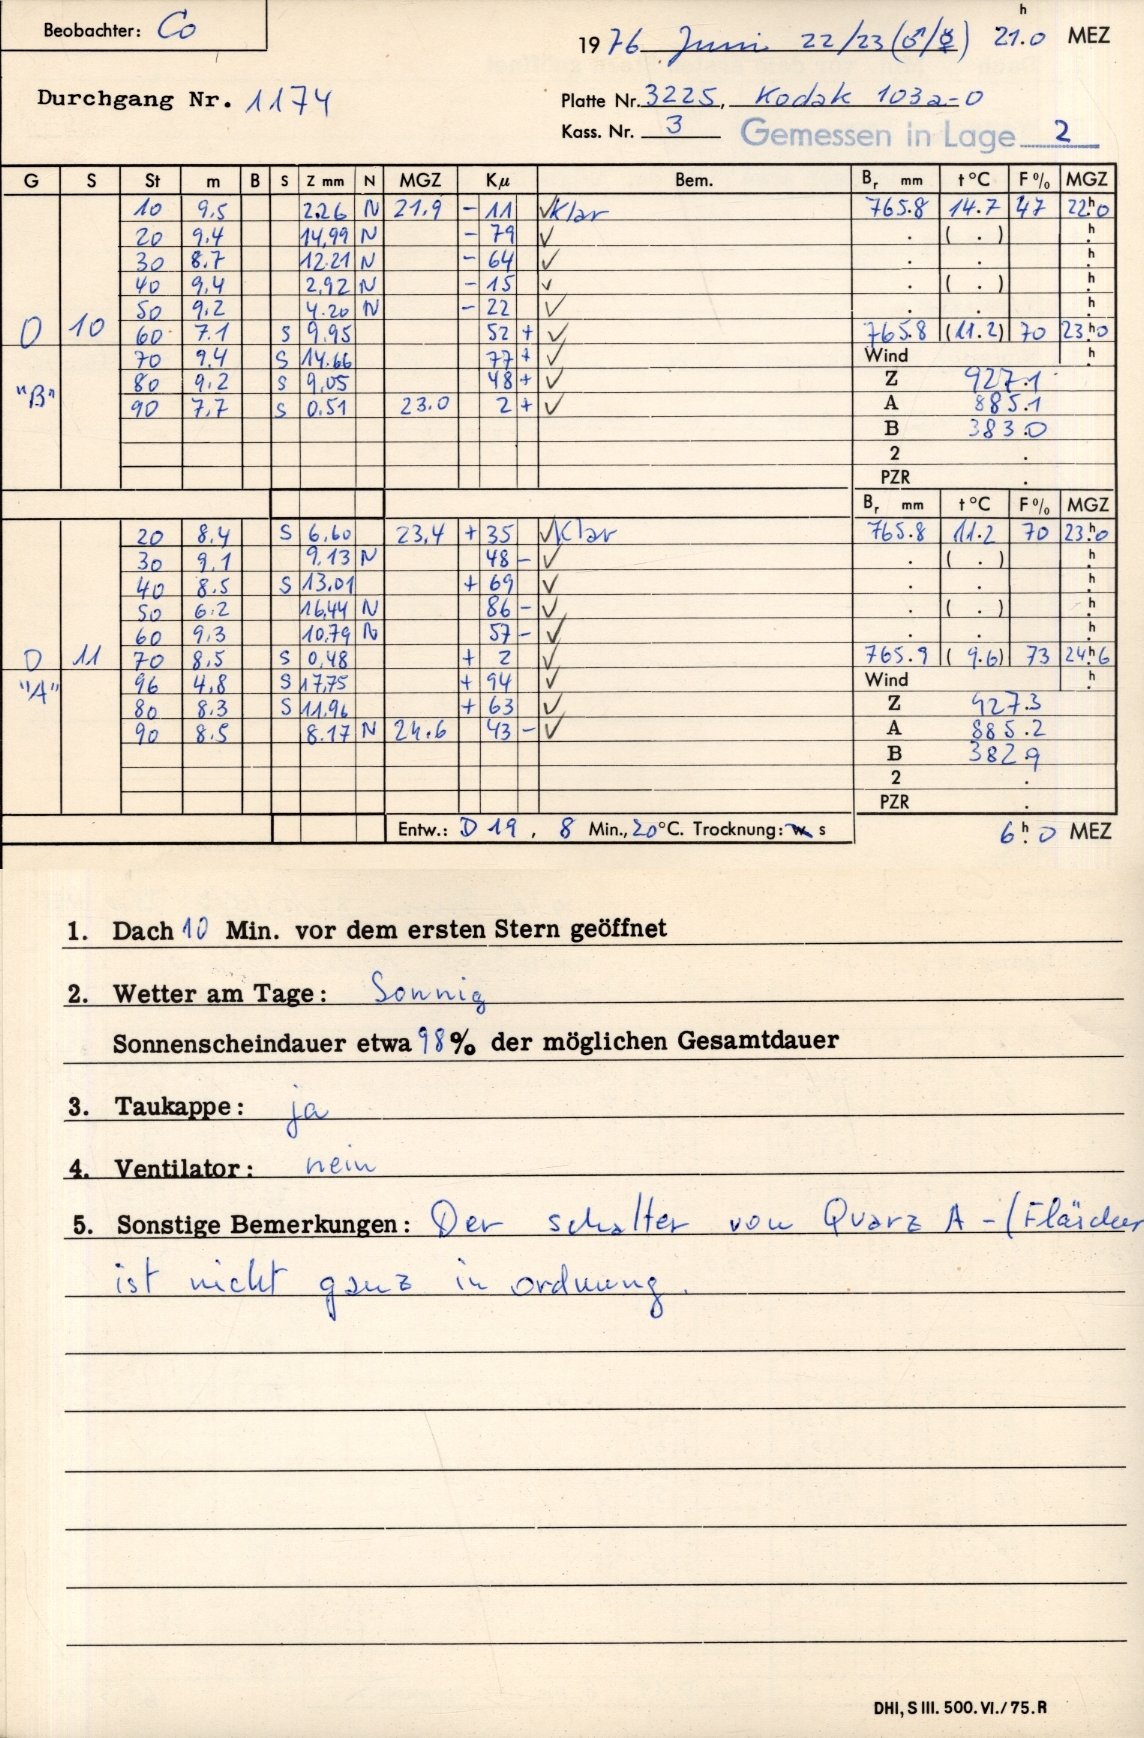 Beobachter: Co
1976 Juni 22/23 (♂/☿) 21.0 h MEZ
Durchgang Nr. 1174
Platte Nr. 3225, Kodak 103a-O
Kass. Nr. 3 Gemessen in Lage 2
G S St m B S Z mm N MGZ Kμ Bem. Br mm t °C F% MGZ
10 9.5 2.26 N 21.9 - 11 ✓ Klar 765.8 14.7 47 22.h0
20 9.4 14,99 N - 79 ✓ . ( . ) .h
30 8.7 12.21 N - 64 ✓ . . .h
40 9,4 2,92 N - 15 ✓ . ( . ) .h
50 9.2 4.20 N - 22 ✓ . . .h
O 10 60 7.1 S 9.95 52 + ✓ 765.8 (11.2) 70 23.h0
70 9,4 S 14.66 77 + ✓ Wind h
"B" 80 9.2 S 9,05 48 + ✓ Z 927.1
90 7,7 S 0.51 23.0 2 + ✓ A 885.1
B 383.0
2 .
PZR .
Br mm t °C F% MGZ
20 8,4 S 6,60 23,4 + 35 ✓ Klar 765.8 11.2 70 23.h0
30 9,1 9,13 N 48 - ✓ . ( . ) .h
40 8.5 S 13.01 + 69 ✓ . . .h
50 6.2 16,44 N 86 - ✓ . ( . ) .h
60 9,3 10,79 N 57 - ✓ . . .h
D 11 70 8,5 S 0,48 + 2 ✓ 765.9 ( 9.6) 73 24.h6
"A" 96 4,8 S 17,75 + 94 ✓ Wind .h
80 8.3 S 11,96 + 63 ✓ Z 927.3
90 8.5 8.17 N 24.6 43 - ✓ A 885.2
B 382.9
2 .
PZR .
Entw.: D 19, 8 Min., 20°C. Trocknung: w s 6.h0 MEZ
1. Dach 10 Min. vor dem ersten Stern geöffnet
2. Wetter am Tage: Sonnig
Sonnenscheindauer etwa 98% der möglichen Gesamtdauer
3. Taukappe: ja
4. Ventilator: nein
5. Sonstige Bemerkungen: Der schalter von Quarz A -
ist nicht ganz in ordnung.
DHI, S III. 500. VI./75. R